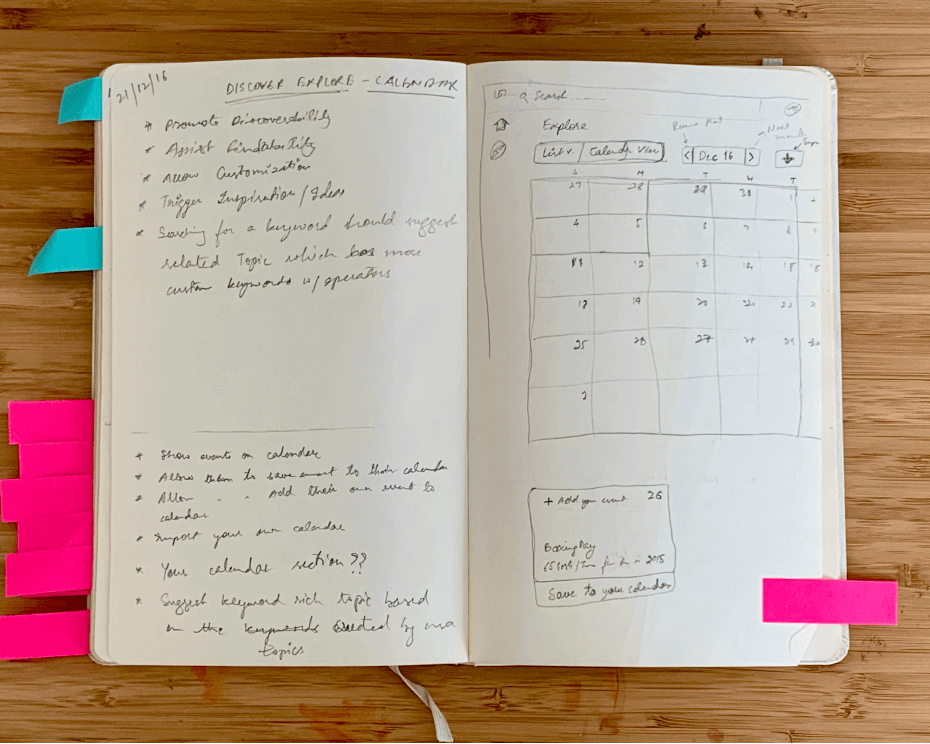 21/12/16
DISCOVER EXPLORE - CALENDAR
* Promote Discoverability
* Assist Findability
* Allow Customization
* Trigger Inspiration / Ideas
* Searching for a keyword should suggest
related Topic which has more
custom keywords w/ operators
* Show events on calender
* Allow them to save event to their calendar
* Allow " " Add their own event to
calendar
* Import your own calendar
* Your calendar section??
* Suggest keyword rich topic based
on the keywords created by
topics
Search
Explore
List v. / Calendar View
< Dec 16 >
Next
S M T W T
27 28 29 30 1 2
4 5 6 7 8
11 12 13 14 15
18 19 20 21 22
25 26 27 28 29 30
+ Add your event 26
Boxing Day
2015
Save to your calendar